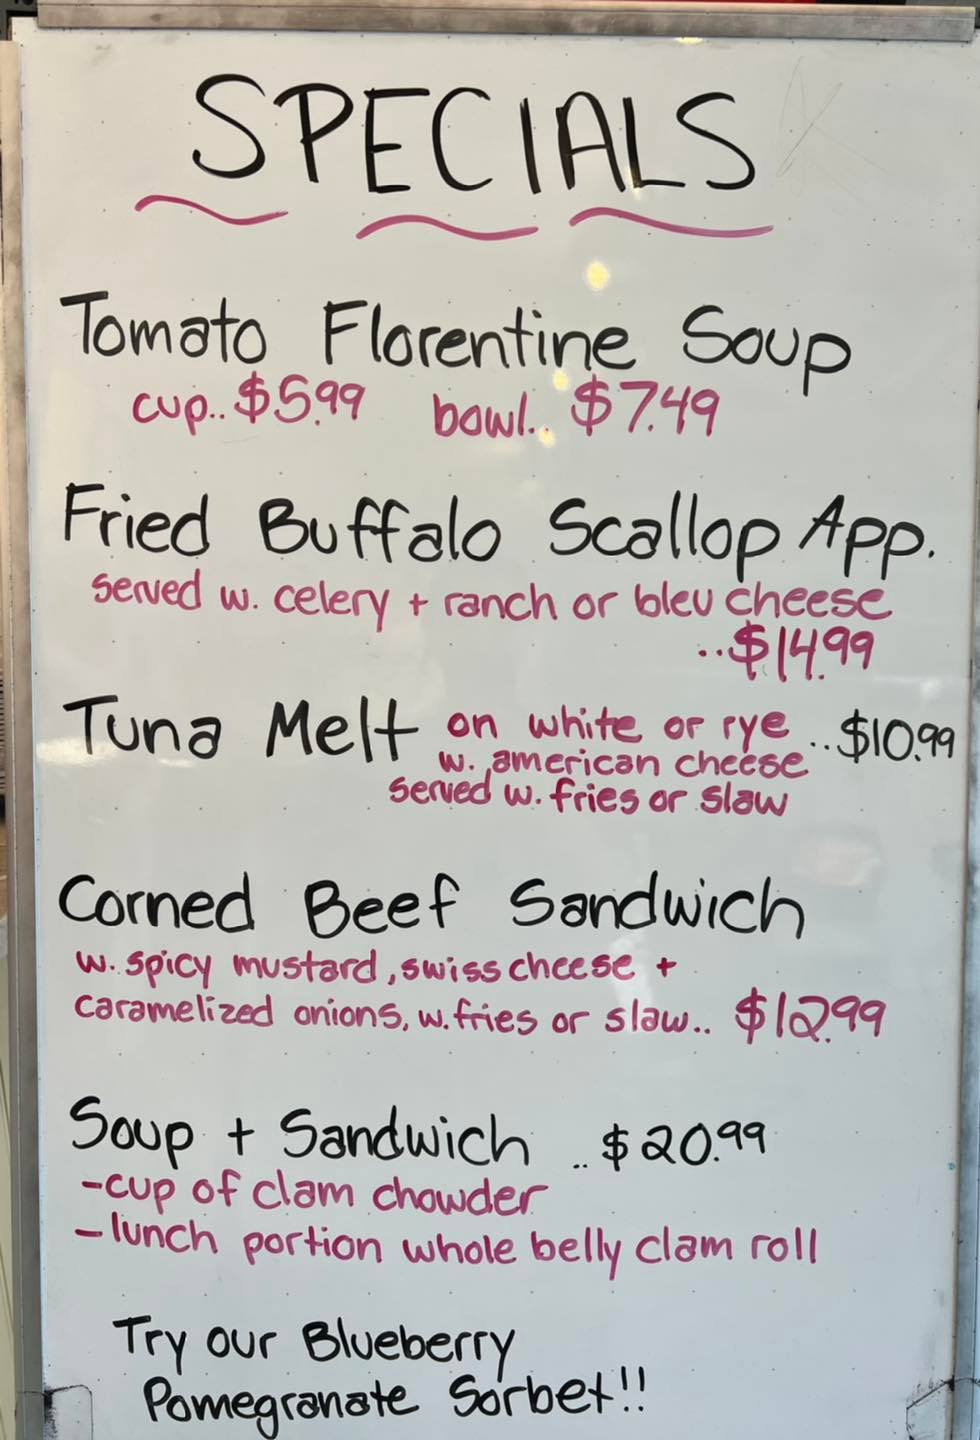 SPECIALS
Tomato Florentine Soup
cup..$5.99 bowl..$7.49
Fried Buffalo Scallop App.
served w. celery + ranch or bleu cheese
..$14.99
Tuna Melt on white or rye ..$10.99
w. american cheese
served w. fries or slaw
Corned Beef Sandwich
w. spicy mustard, swiss cheese +
caramelized onions, w. fries or slaw.. $12.99
Soup + Sandwich ..$20.99
-cup of clam chowder
-lunch portion whole belly clam roll
Try our Blueberry
Pomegranate Sorbet!!